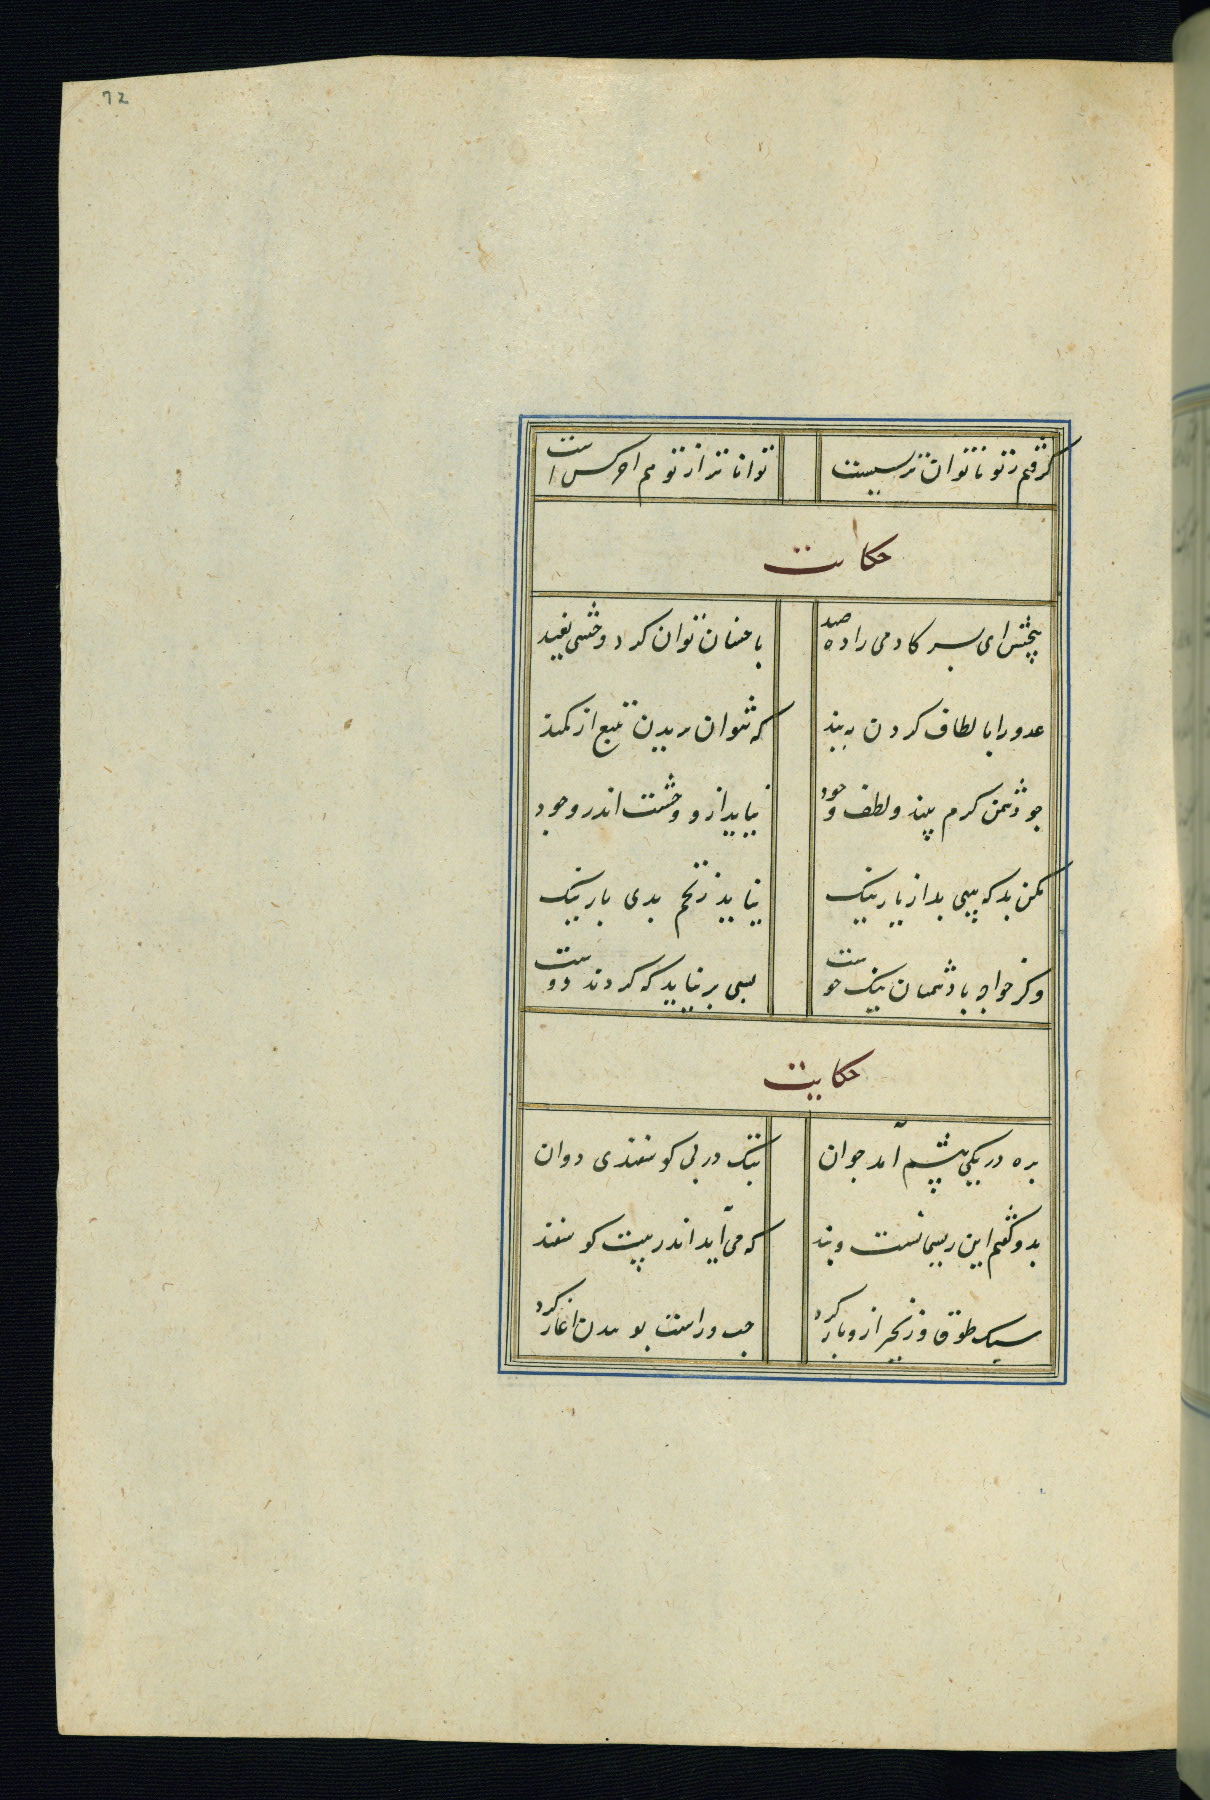 72
گرفتم ز تو ناتوان تر بسیست
تواناتر از تو هم اخر کس است
حکایت
ببخش ای پسر کادمی زاده صید
باحسان توان کرد و وحشی بقید
عدو را بالطاف کردن ببند
که نتوان بریدن بتیغ از کمند
چو دشمن کرم بیند و لطف و جود
نیاید ازو وحشت اندر وجود
مکن بد که بینی بد از یار نیک
نیاید ز تخم بدی بار نیک
وکر خواجه با دشمنان نیک خوست
بسی برنیاید که کردند دوست
حکایت
بره در یکی پیشم آمد جوان
بتک در پی کوسفندی دوان
بدو گفتم این ریسمانست و بند
که می آید اندر پیت کوسفند
سبک طوق و زنجیر ازو باز کرد
چپ و راست بوییدن اغاز کرد